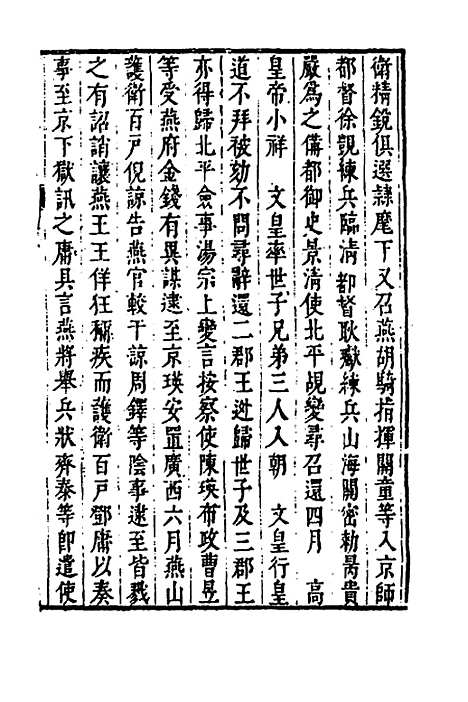 衛精銳俱選隷麾下又召燕胡騎指揮關童等入京師
都督徐覬練兵臨清都督耿瓛練兵山海關密勅昺貴
嚴爲之偹都御史景清使北平覘變尋召還四月　高
皇帝小祥　文皇率世子兄弟三人入朝　文皇行皇
道不拜被劾不問尋辭還二郡王迯歸世子及三郡王
亦得歸北平僉事湯宗上變言按察使陳瑛布政曹昱
等受燕府金錢有異謀逮至京瑛安置廣西六月燕山
護衛百戸倪諒告燕官較于諒周鐸等陰事逮至皆戮
之有詔誚讓燕王王佯狂稱疾而護衛百戸鄧庸以奏
事至京下獄訊之庸具言燕將舉兵狀齊泰等卽遣使